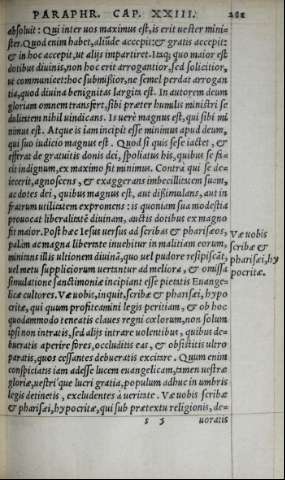 PARAPHR. CAP. XXIII. 282
absoluit: Qui inter uos maximus est, is erit uester mini-
ster. Quod enim habet, aliūde accepit: & gratis accepit:
& in hoc accepit, ut alijs impartiret. Itaq; quo maior est
dotibus diuinis, non hoc erit arrogantior, sed solicitior,
ut communicet: hoc submissior, ne semel perdat arrogan
tia, quod diuina benignitas largita est. In autorem deum
gloriam omnem transfert, sibi præter humilis ministri se
dulitatem nihil uindicans. Is uerè magnus est, qui sibi mi
nimus est. Atque is iam incipit esse minimus apud deum,
qui suo iudicio magnus est. Quod si quis sese iactet, &
efferat de gratuitis donis dei, spoliatus his, quibus se fe-
cit indignum, ex maximo fit minimus. Contrà qui se de-
iecerit, agnoscens, & exaggerans imbecillitatem suam,
ac dotes dei, quibus magnus est, aut dissimulans, aut in
fratrum utilitatem expromens: is quoniam sua modestia
prouocat liberalitatē diuinam, auctis dotibus ex magno
fit maior. Post hæc Iesus uersus ad scribas & pharisæos,
palàm ac magna libertate inuehitur in malitiam eorum,
minitans illis ultionem diuinā, quo uel pudore resipiscāt,
uel metu suppliciorum uertantur ad meliora, & omissa
simulatione sanctimoniæ incipiant esse pietatis Euange-
licæ cultores. Væ uobis, inquit, scribæ & pharisæi, hypo
critæ, qui quum profiteamini legis peritiam, & ob hoc
quodammodo teneatis claues regni cœlorum, non solum
ipsi non intratis, sed alijs intrare uolentibus, quibus de-
bueratis aperire fores, occluditis eas, & obsistitis ultro
paratis, quos cessantes debueratis excitare. Quum enim
conspiciatis iam adesse lucem euangelicam, tamen uestræ
gloriæ, uestri'que lucri gratia, populum adhuc in umbris
legis detinetis, excludentes à ueritate. Væ uobis scribæ
& pharisæi, hypocritæ, qui sub prætextu religionis, de-
s 3 uoratis
Væ uobis
scribæ &
pharisæi, hy
pocritæ.